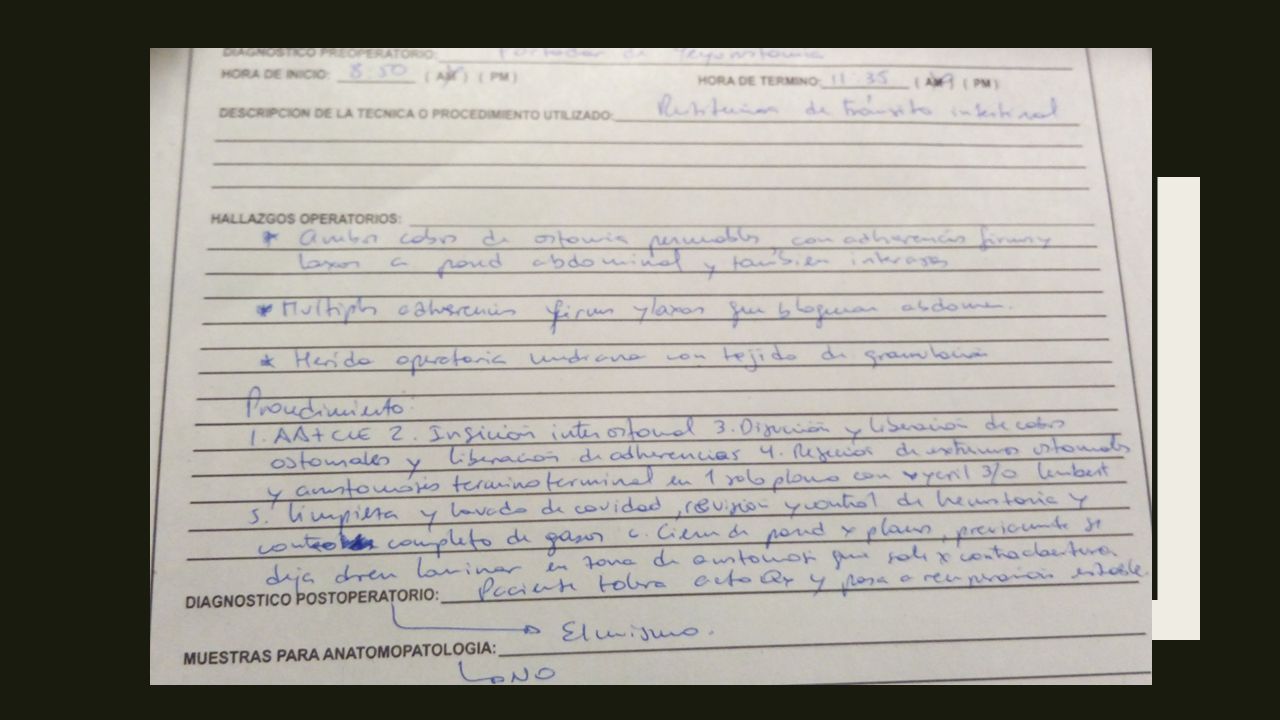 DIAGNOSTICO PREOPERATORIO: Portador de Yeyunostomia
HORA DE INICIO: 8:50 (AM) (PM) HORA DE TERMINO: 11:35 (AM) (PM)
DESCRIPCION DE LA TECNICA O PROCEDIMIENTO UTILIZADO: Restitucion de tránsito intestinal
HALLAZGOS OPERATORIOS:
* Ambos cabos de ostomia permeables, con adherencias firmes y
laxas a pared abdominal y tambien interasas
* Multiples adherencias firmes y laxas que bloquean abdomen.
* Herida operatoria mediana con tejido de granulación
Procedimiento:
1. AA+CCE 2. Insición interostomal 3. Disección y liberación de cabos
ostomales y liberación de adherencias 4. Resección de extremos ostomales
y anastomosis terminoterminal en 1 solo plano con vycril 3/0 lembert
5. limpieza y lavado de cavidad, revisión y control de hemostasia y
completo de gasas 6. Cierre de pared x planos, previamente se
deja dren laminar en zona de anastomosis que sale x contraabertura
Paciente tolera acto Qx y pasa a recuperación estable.
DIAGNOSTICO POSTOPERATORIO:
El mismo.
MUESTRAS PARA ANATOMOPATOLOGIA:
NO